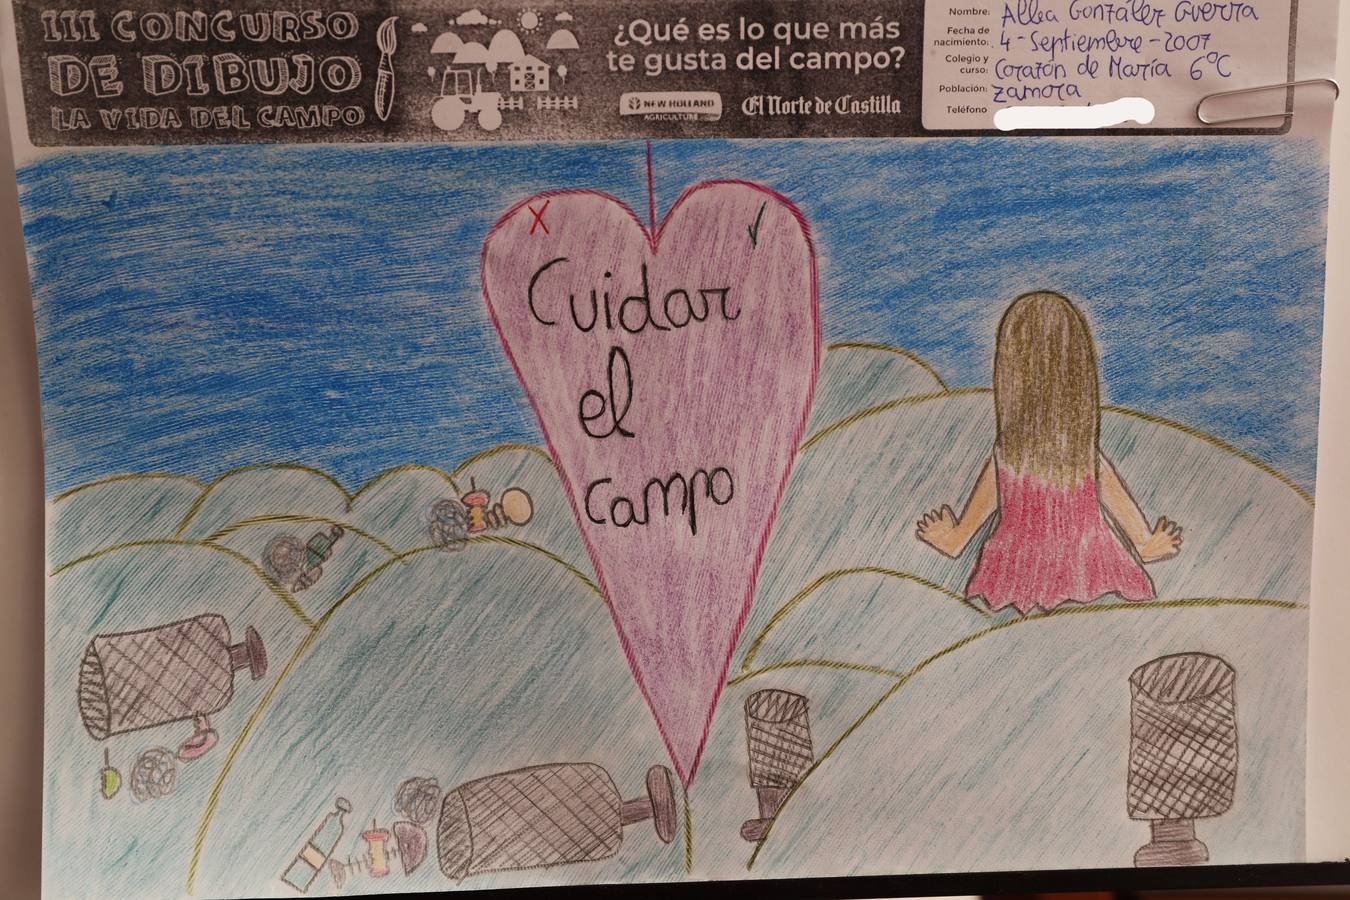 III CONCURSO
DE DIBUJO
LA VIDA DEL CAMPO
¿Qué es lo que más
te gusta del campo?
NEW HOLLAND
AGRICULTURE
El Norte de Castilla
Nombre: Alba González Guerra
Fecha de
nacimiento: 4-Septiembre-2007
Colegio y
curso: Corazón de María 6ºC
Población: Zamora
Teléfono
X ✓
Cuidar
el
campo